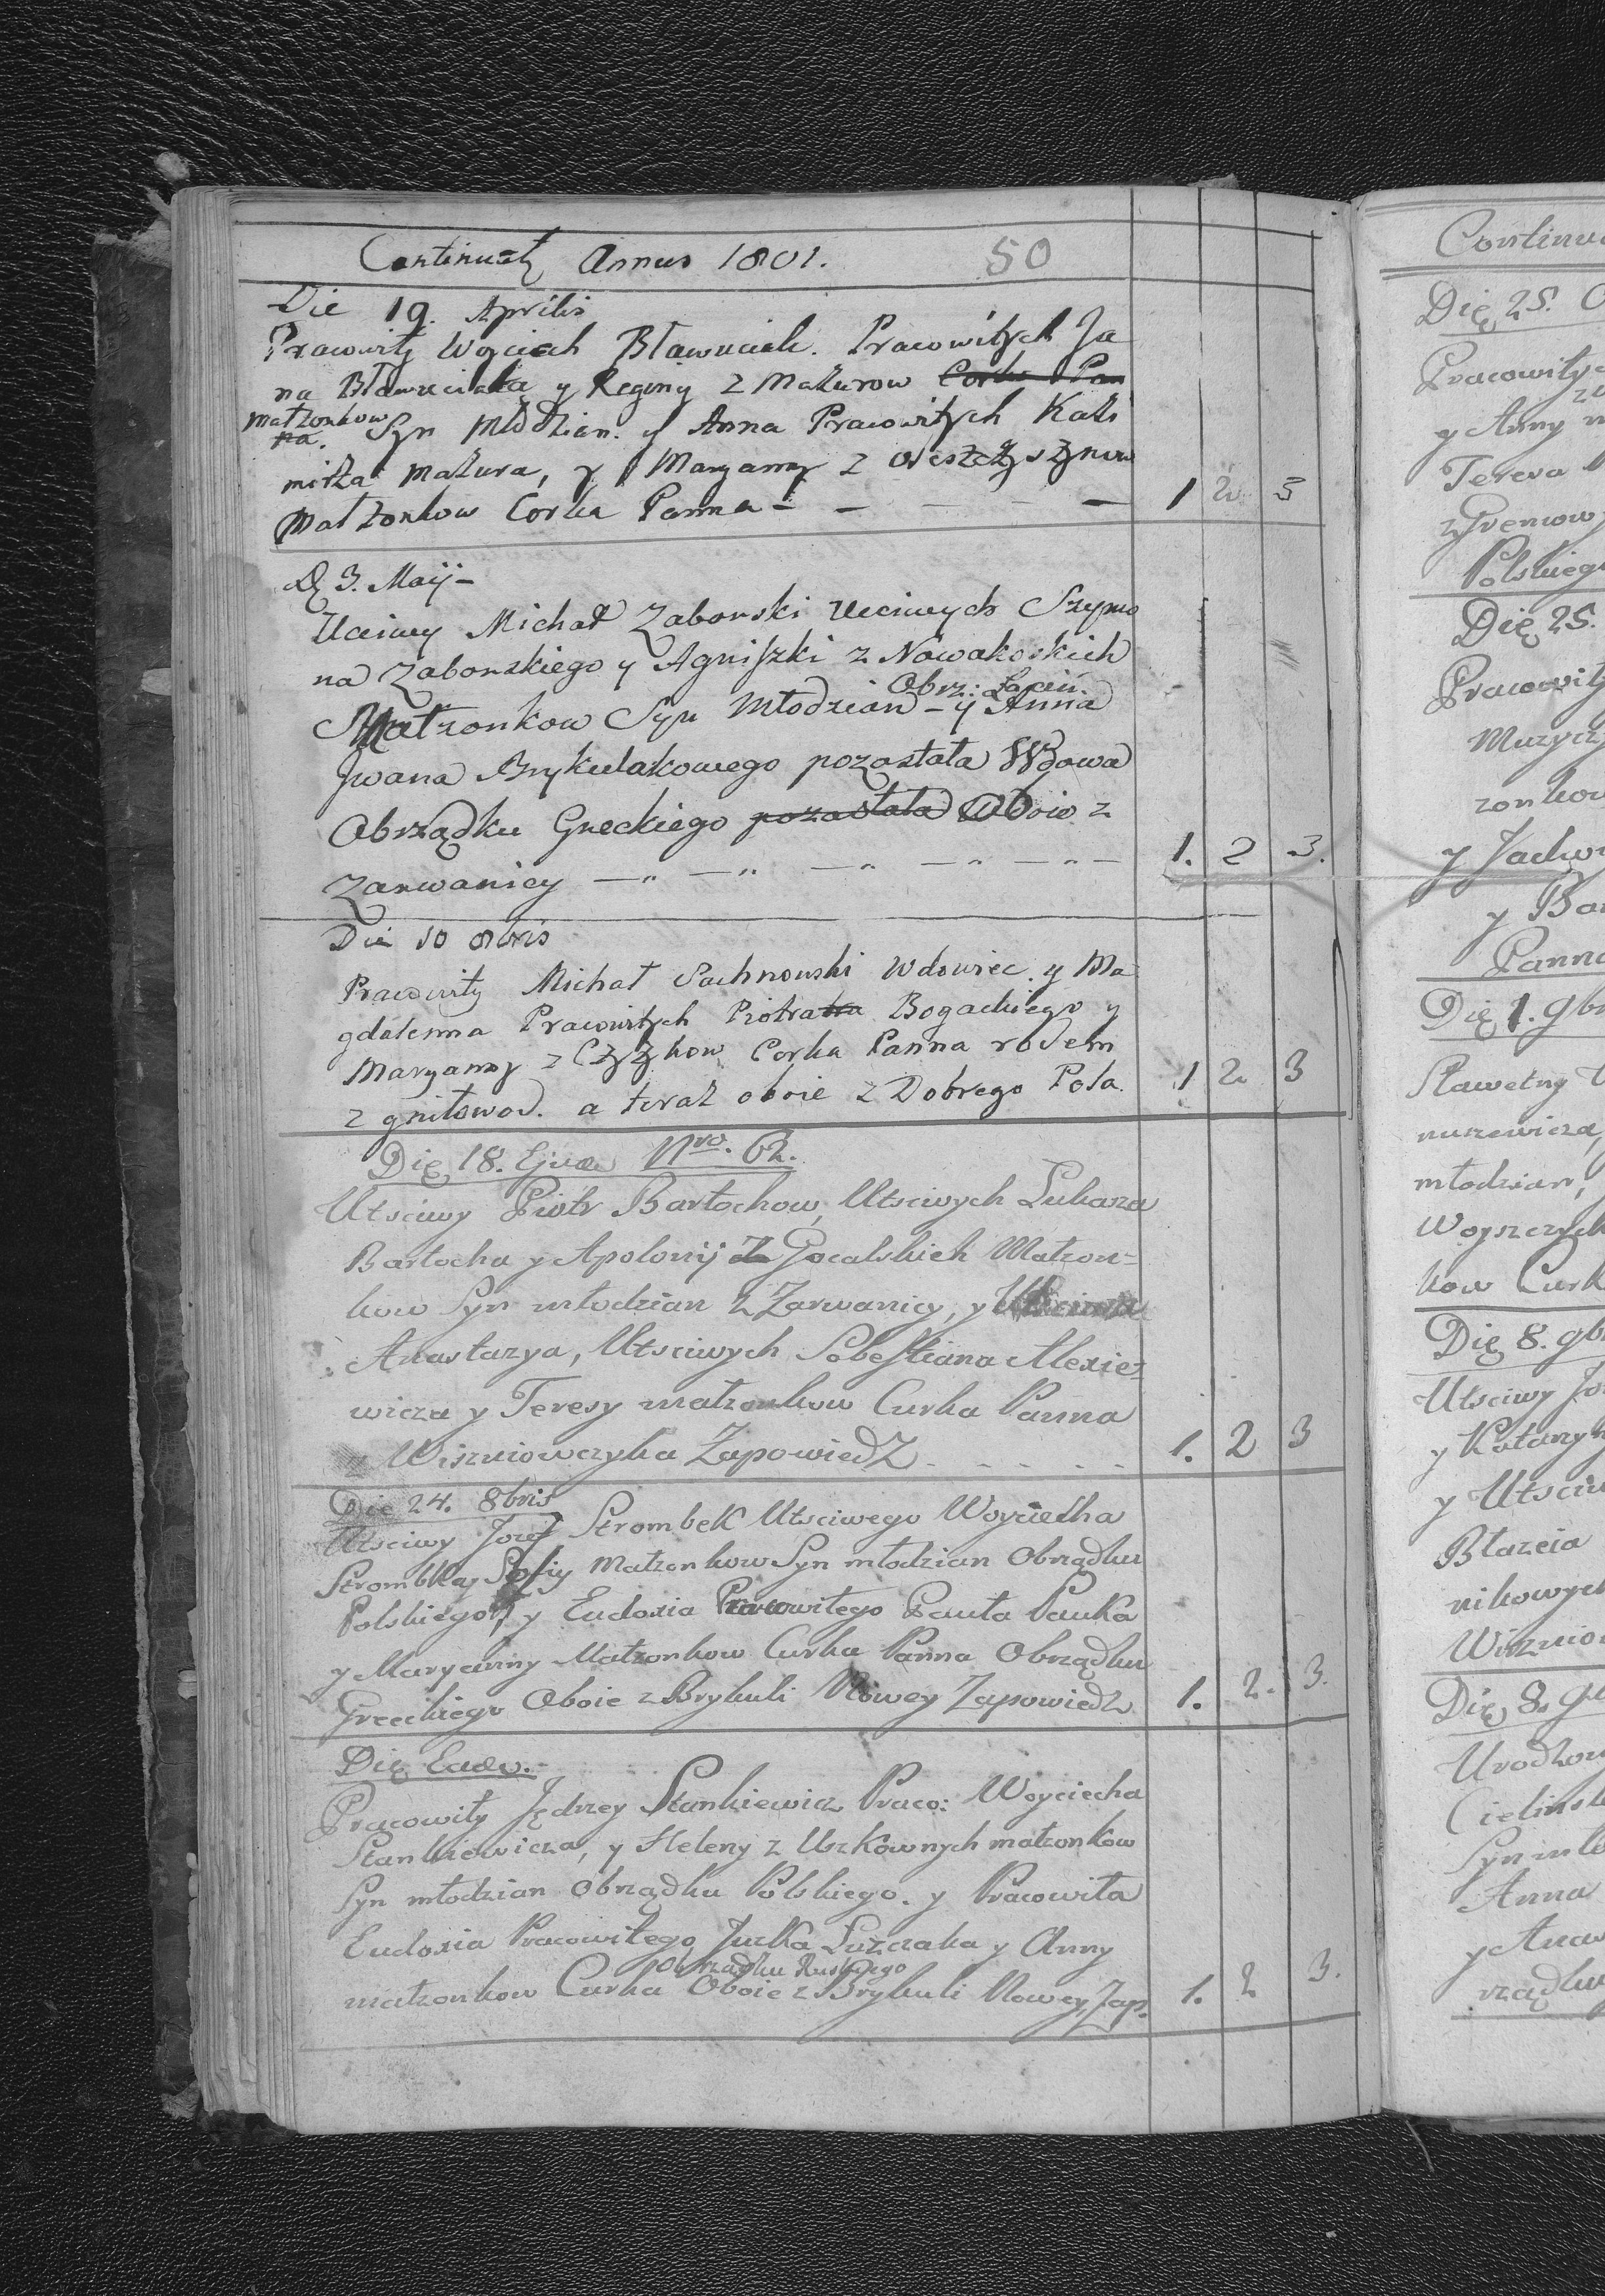 Continuat Annus 1801. 50
Die 19. Aprilis
Pracowity Woyciech Bławuciak. Pracowitych Ja
na Bławuciaka y Reginy z Mazurow Corka Pan
małżonkow
na. Syn Młodzian. y Anna Pracowitych Kazi
mirza Mazura, y Maryanny z
Małzonkow Corka Panna - - - - 1 2 3
D 3. Maij -
Uciwy Michał Zaborski Uciwych Szymo
na Zaborskiego y Agniszki z Nowakoskich
Obrz: Łaciń.
Małzonkow Syn Młodzian - y Anna
Jwana Brykulakowego pozostała Wdowa
Obrządku Greckiego pozostała Oboie z
Zarwanicy —„ —„ —„ —„ —„— 1. 2 3.
Die 10 8bris
Pracowity Michał Sachnowski Wdowiec y Ma
gdalenna Pracowitych Piotra Bogackiego y
Maryanny z Czyzkow Corka Panna rodem
z gniłowod. a teraz oboie z Dobrego Pola. 1 2 3
Die 18. Ejusd Nro. 62.
Utsciwy Piotr Bartochow, Utsciwych Lukasza
Bartocha y Apolonij z Gocalskich Małzon-
kow Syn młodzian z Zarwanicy, y
Anastazya, Utsciwych Sobestiana Alexie-
wicza y Teresy małzonkow Curka Panna
z Wiszniowczyka Zapowiedz . . . . . 1. 2 3
Die 24. 8bris
Utsciwy Jozef Strombek Utsciwego Woyciecha
Strombka y Sofiy Małzonkow Syn młodzian Obrządku
Polskiego, y Eudoxia Pracowitego Pawła Pauka
y Maryanny Małzonkow Curka Panna Obrządku
Greckiego Oboie z Brykuli Nowey Zapowiedz 1. 2. 3.
Die Eadem.
Pracowity Jędrzey Stankiewicz Praco: Woyciecha
Stankiewicza, y Heleny z Uszkownych małzonkow
Syn młodzian Obrządku Polskiego. y Pracowita
Eudoxia Pracowitego Jurka Luzczaka y Anny
Obrządku Ruskiego
małzonkow Curka Oboie z Brykuli Nowey, Zap. 1. 2 3.
Die 25.
Pracowityc
y Anny
Teresa
Polskieg
Die 25.
Pracowity
zonkow
y Jadw
y Bar
Panna
Die 1. 9br
Sławetny
młodzian,
kow Curk
Die 8. 9br
Utsciwy Jo
y Katarzy
y Utsciw
Błazeia
nikowych
Wiszniow
Die 8. 9
Urodzon
Cielinsk
Syn mło
Anna
rządku